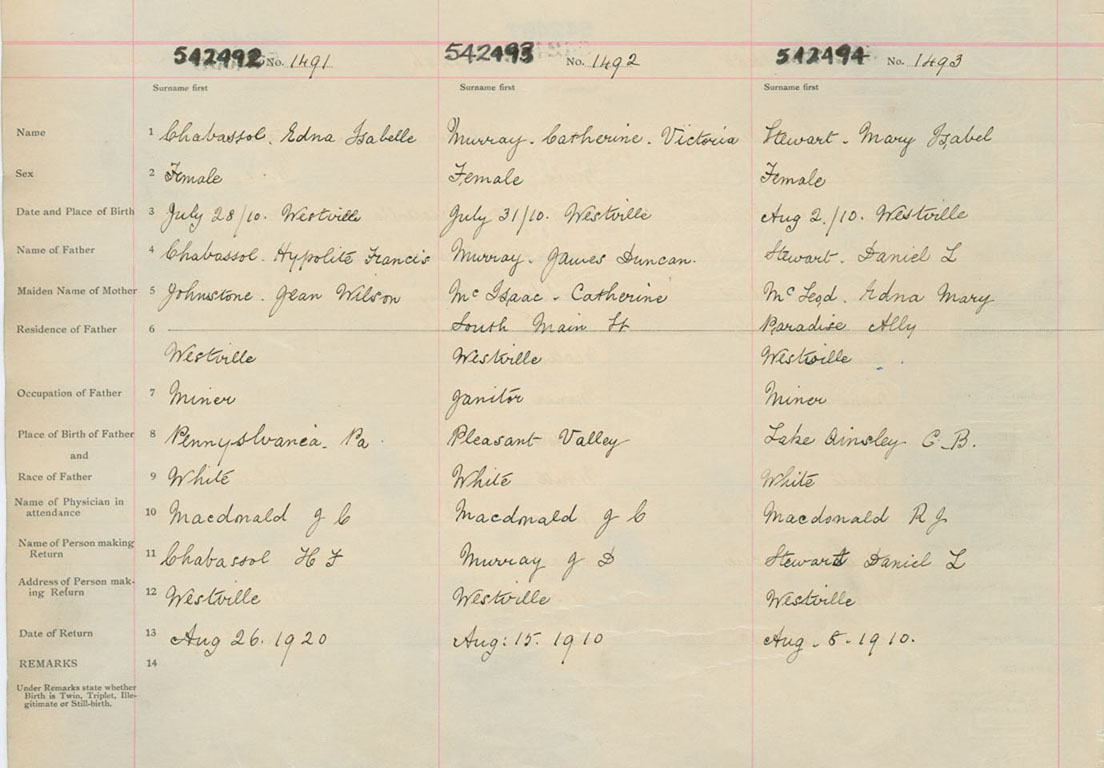 542492 No. 1491 542493 No. 1492 542494 No. 1493
Surname first Surname first Surname first
Name 1 Chabassol. Edna Isabelle Murray. Catherine. Victoria Stewart. Mary Isabel
Sex 2 Female Female Female
Date and Place of Birth 3 July 28/10. Westville July 31/10. Westville Aug 2./10. Westville
Name of Father 4 Chabassol. Hypolite Francis Murray. James Duncan. Stewart. Daniel L
Maiden Name of Mother 5 Johnstone. Jean Wilson Mc Isaac - Catherine Mc Leod. Edna Mary
Residence of Father 6 South Main St Paradise Ally
Westville Westville Westville
Occupation of Father 7 Miner Janitor Miner
Place of Birth of Father 8 Pennyslvania. Pa. Pleasant Valley Lake Ainsley C.B.
and
Race of Father 9 White White White
Name of Physician in
attendance 10 Macdonald J C Macdonald J C Macdonald R J
Name of Person making
Return 11 Chabassol H F Murray J D Stewart Daniel L
Address of Person mak-
ing Return 12 Westville Westville Westville
Date of Return 13 Aug 26. 1920 Aug: 15. 1910 Aug. 8. 1910.
REMARKS 14
Under Remarks state whether
Birth is Twin, Triplet, Ille-
gitimate or Still-birth.